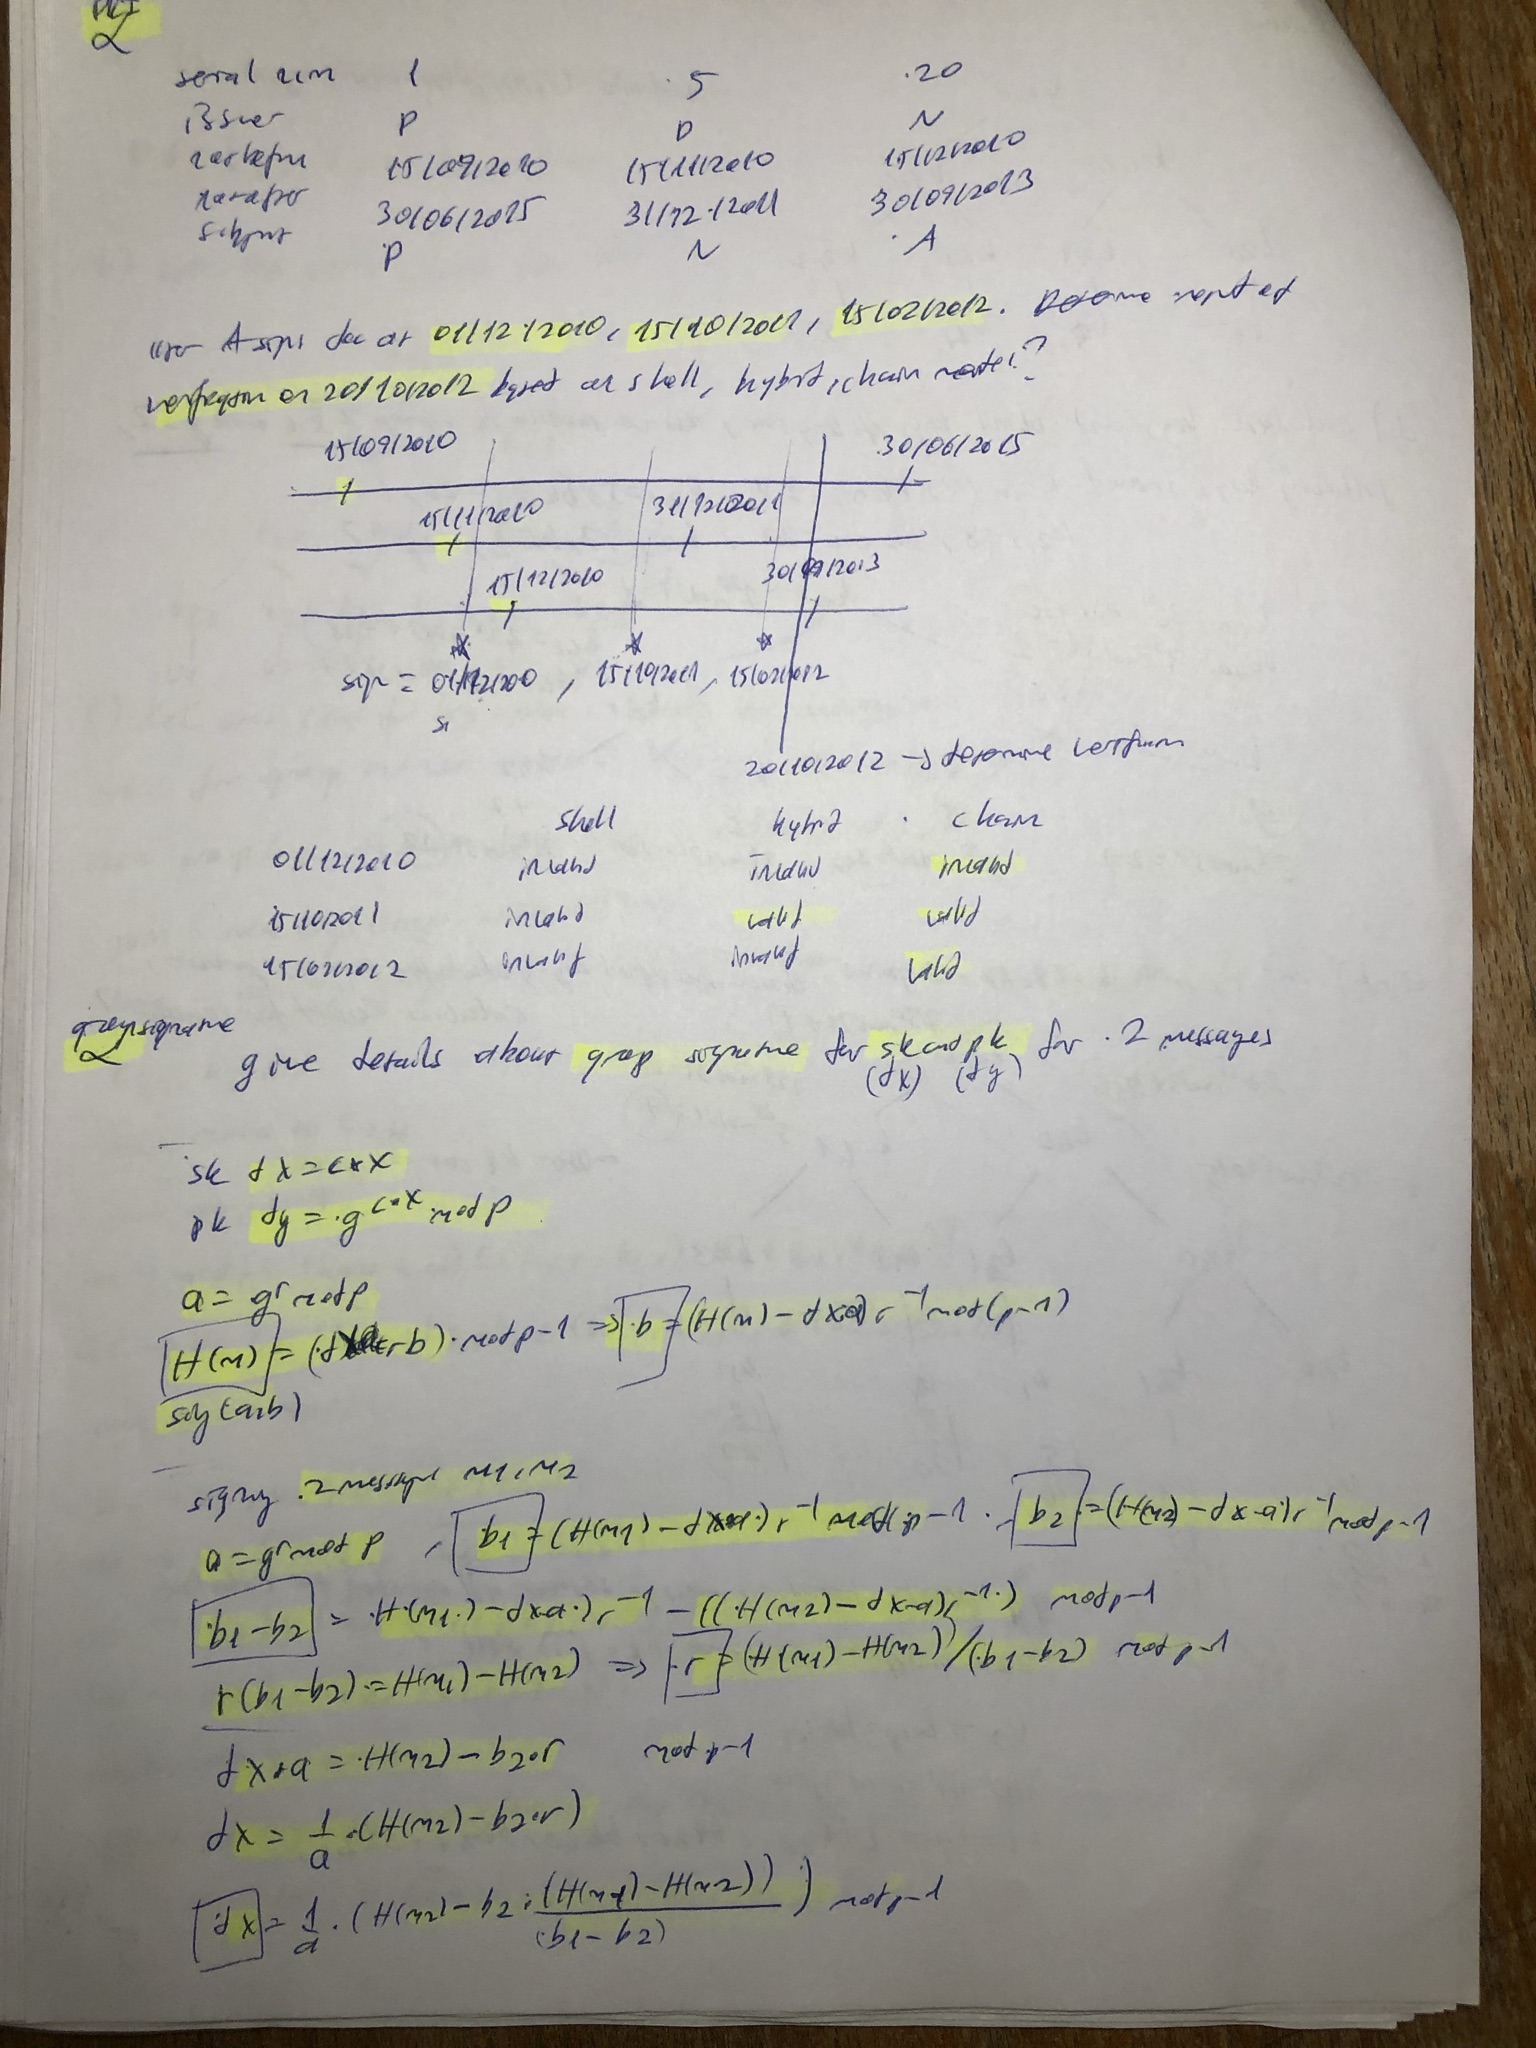 PKI
2
serial num 1 5 20
issuer P D N
15/09/2010 15/11/2010 15/12/2010
30/06/2015 31/12/2011 30/09/2013
subject P N A
A signs doc at 01/12/2010, 15/10/2011, 15/02/2012.
on 20/10/2012 based on shell, hybrid, chain model?
15/09/2010 30/06/2015
15/11/2010 31/12/2011
15/12/2010 30/09/2013
sign = 01/12/2010, 15/10/2011, 15/02/2012
20/10/2012 → determine
shell hybrid chain
01/12/2010 invalid invalid invalid
15/10/2011 invalid valid valid
15/02/2012 invalid invalid valid
2 give details about group signature for sk and pk for 2 messages
(dx) (dy)
sk dx = c*x
pk dy = g^c*x mod p
a = g^r mod p
H(m) = (dxa+rb) mod p-1 => b = (H(m) - dxa) r^-1 mod (p-1)
(a,b)
2 message m1, m2
a = g^r mod p, b1 = (H(m1) - dx·a) r^-1 mod p-1 b2 = (H(m2) - dx·a) r^-1 mod p-1
b1-b2 = H(m1) - dx·a) r^-1 - ((H(m2) - dx·a) r^-1) mod p-1
r(b1-b2) = H(m1) - H(m2) => r = (H(m1) - H(m2))/(b1-b2) mod p-1
dx·a = H(m2) - b2·r mod p-1
dx = 1/a · (H(m2) - b2·r)
dx = 1/a · (H(m2) - b2 · (H(m1) - H(m2))/(b1-b2)) mod p-1